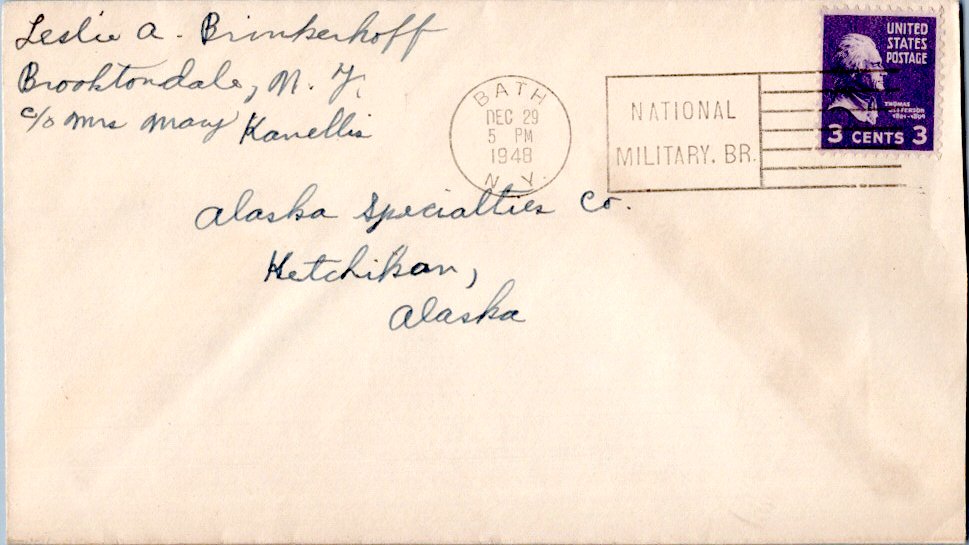 Leslie A. Brinkerhoff
Brooktondale, N. Y.
c/o Mrs Mary Kanellis
BATH
DEC 29
5 PM
1948
N. Y.
NATIONAL
MILITARY. BR.
UNITED
STATES
POSTAGE
THOMAS
JEFFERSON
1801-1809
3 CENTS 3
Alaska Specialties Co.
Ketchikan,
Alaska